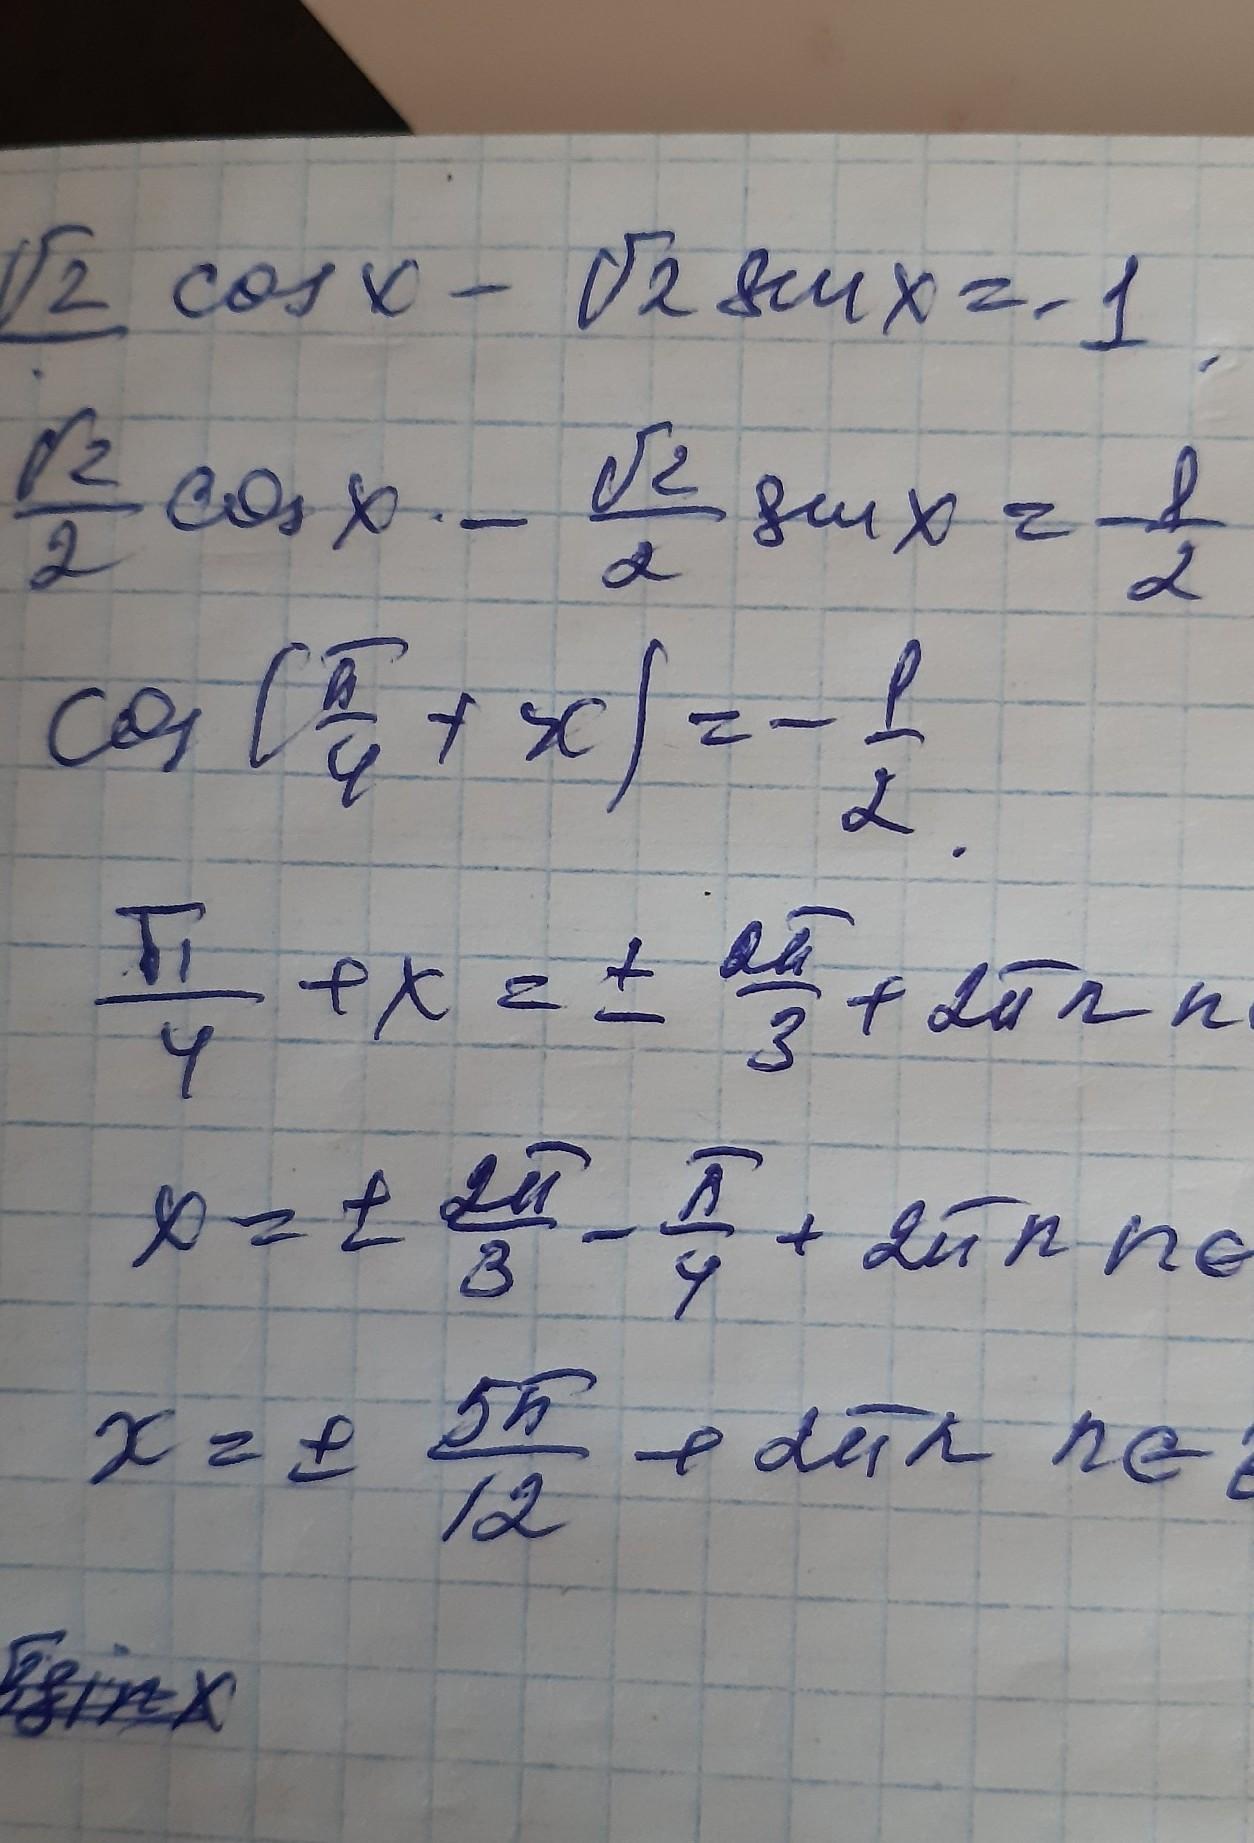 √2 cos x - √2 sin x = -1
√2/2 cos x - √2/2 sin x = -1/2
cos (π/4 + x) = -1/2
π/4 + x = ± 2π/3 + 2πn n
x = ± 2π/3 - π/4 + 2πn n∈
x = ± 5π/12 + 2πn n∈Z